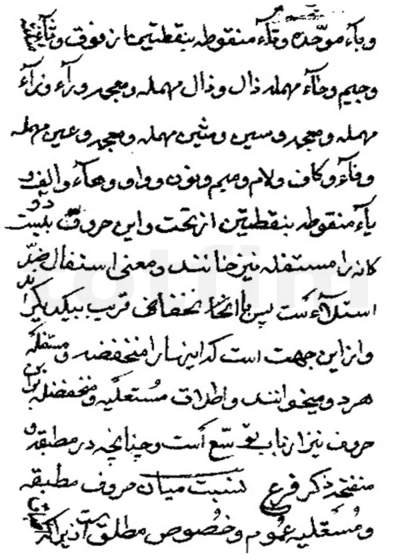 وباء موحده وتاء منقوطه بنقطتین از فوق وثاء
وجیم وحاء مهمله ذال وذال مهمله ومعجمه وراء وزاء
مهمله ومعجمه وسین وشین مهمله ومعجمه وعین مهمله
وفاء وکاف ولام ومیم ونون وواو وهاء والف و
یاء منقوطه بنقطتین از تحت واین حروف بیست ودو
کانه را مستفله نیز خوانند ومعنی استفال ضد
استلاء است پس با انخفاض قریب بیکدیگر
واز این جهت است که اینها را منخفضه ومستفله
هر دو میخوانند واطلاق مستعلیه ومنخفضه براین
حروف نیز از باب توسع است وچنانچه در مطبقه و
منفتحه ذکر فرع نسبت میان حروف مطبقه
ومستعلیه عموم وخصوص مطلق است زیرا که